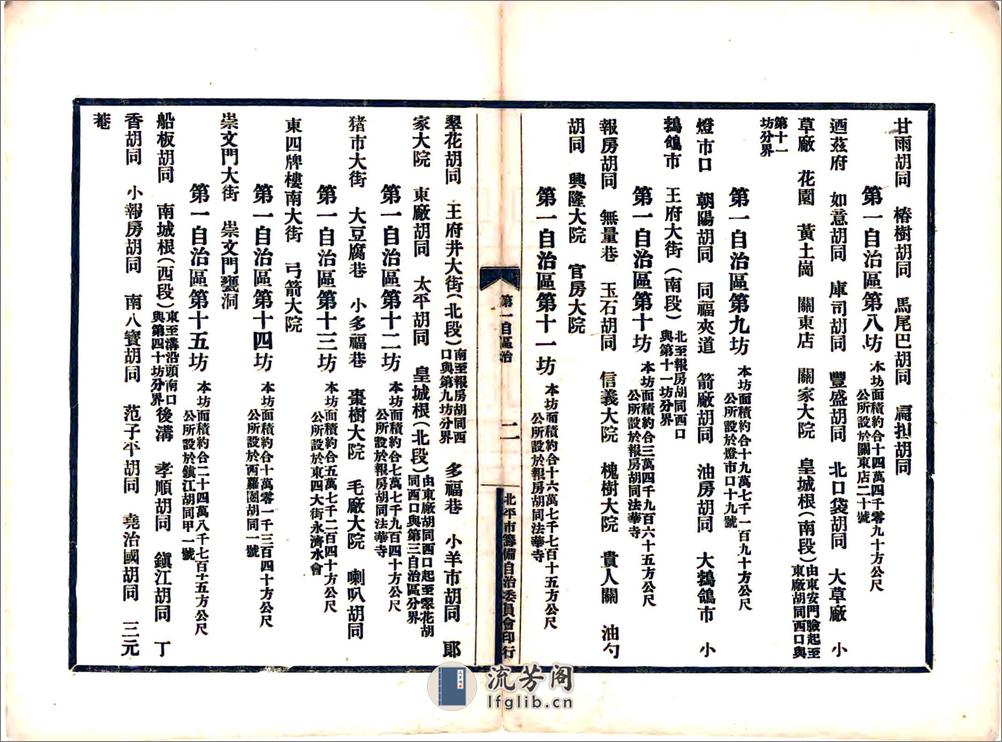 甘雨胡同　椿樹胡同　馬尾巴胡同　扁担胡同
第一自治區第八坊　本坊面積約合十四萬四千零九十方公尺
公所設於關東店二十號
迺茲府　如意胡同　庫司胡同　豐盛胡同　北口袋胡同　大草廠　小
草廠　花園　黃土崗　關東店　關家大院　皇城根（南段）由東安門臉起至
東廠胡同西口與
第十一
坊分界
第一自治區第九坊　本坊面積約合十九萬七千一百九十方公尺
公所設於燈市口十九號
燈市口　朝陽胡同　同福夾道　箭廠胡同　油房胡同　大鵓鴿市　小
鵓鴿市　王府大街（南段）北至報房胡同西口
與第十一坊分界
第一自治區第十坊　本坊面積約合三萬四千九百六十五方公尺
公所設於報房胡同法華寺
報房胡同　無量巷　玉石胡同　信義大院　槐樹大院　貴人關　油勺
胡同　興隆大院　官房大院
第一自治區第十一坊　本坊面積約合十六萬七千七百十五方公尺
公所設於報房胡同法華寺
第一自區治
二
北平市籌備自治委員會印行
翠花胡同　王府井大街（北段）南至報房胡同西
口與第九坊分界　多福巷　小羊市胡同　郎
家大院　東廠胡同　太平胡同　皇城根（北段）由東廠胡同西口起至翠花胡
同西口與第三自治區分界
第一自治區第十二坊　本坊面積約合七萬七千九百四十方公尺
公所設於報房胡同法華寺
猪市大街　大豆腐巷　小多福巷　棗樹大院　毛廠大院　喇叭胡同
第一自治區第十三坊　本坊面積約合五萬七千二百四十方公尺
公所設於東四大街永濟水會
東四牌樓南大街　弓箭大院
第一自治區第十四坊　本坊面積約合十萬零一千三百四十方公尺
公所設於西蘿圈胡同一號
崇文門大街　崇文門甕洞
第一自治區第十五坊　本坊面積約合二十四萬八千七百十五方公尺
公所設於鎮江胡同甲一號
船板胡同　南城根（西段）東至溝沿頭南口
與第四十坊分界　後溝　孝順胡同　鎮江胡同　丁
香胡同　小報房胡同　南八寶胡同　范子平胡同　堯治國胡同　三元
菴
流芳阁
lfglib.cn